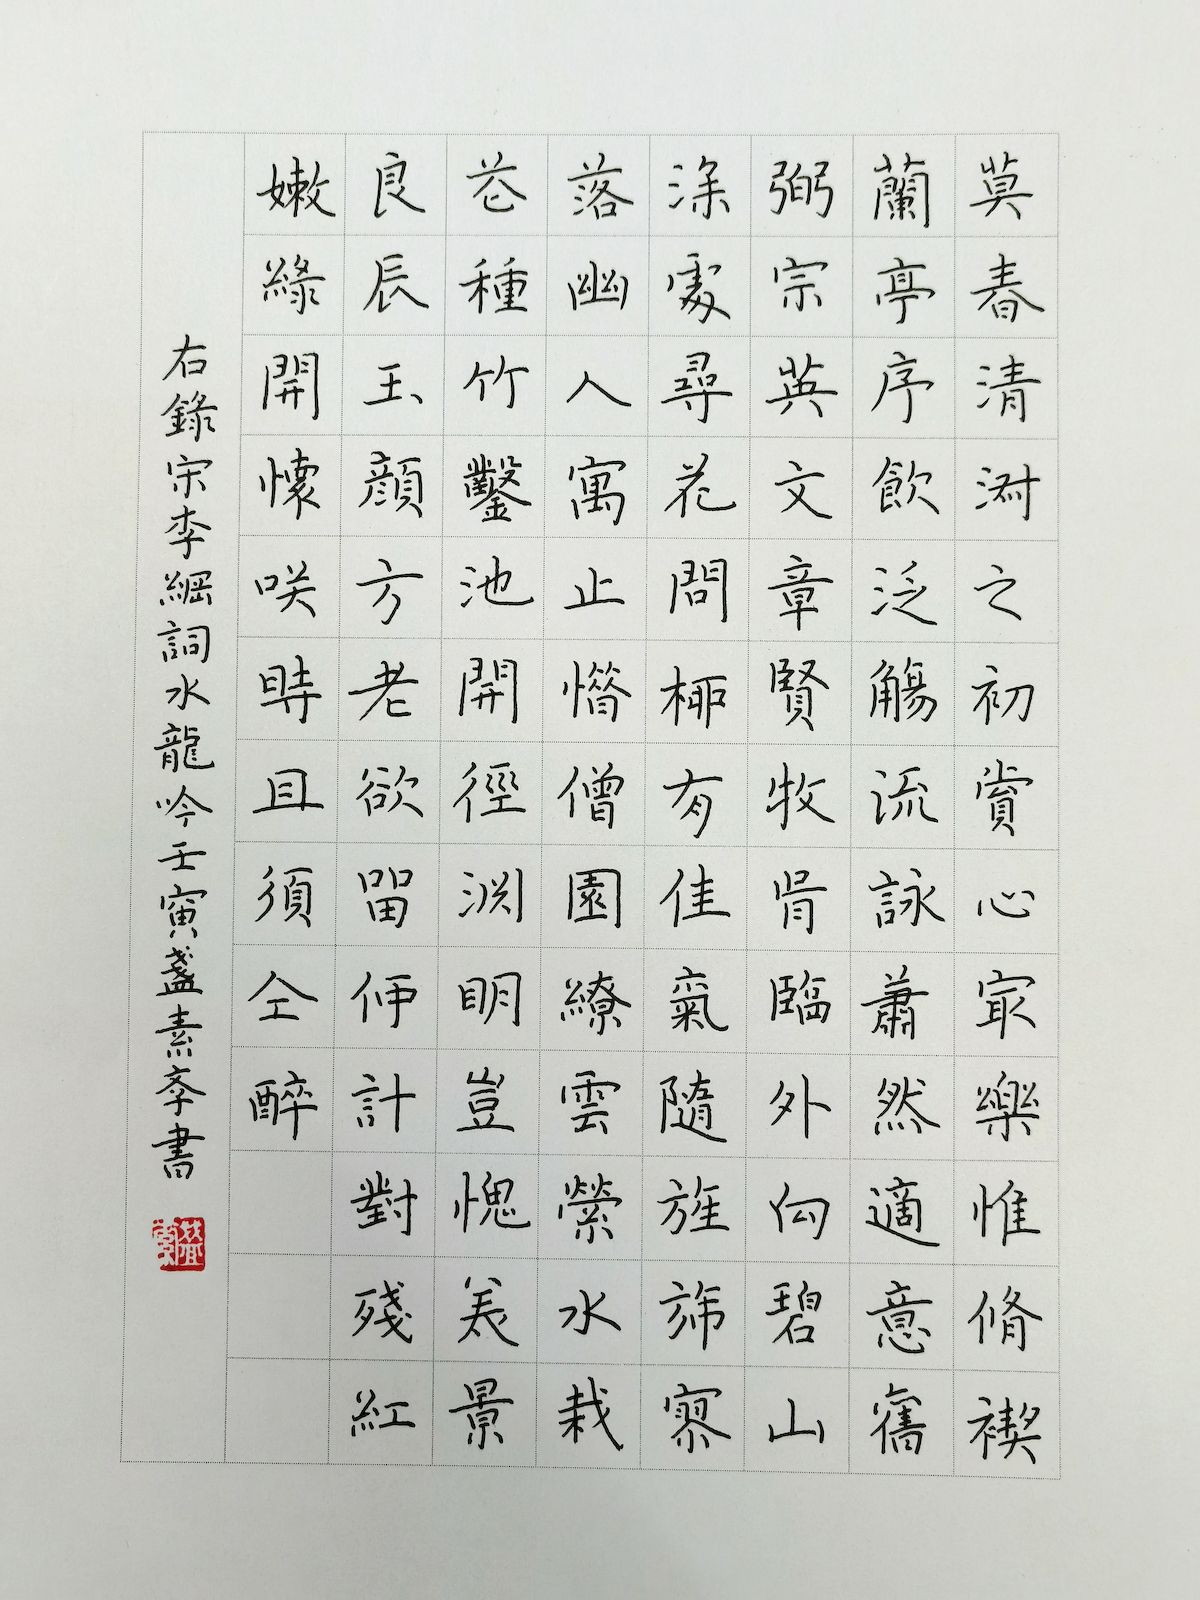 莫春清淑之初賞心最樂惟脩禊
蘭亭序飲泛觴流詠蕭然適意舊
弼宗英文章賢牧肯臨外向碧山
深處尋花問柳有佳氣隨旌旆寥
落幽人寓止憯僧園繚雲縈水栽
花種竹鑿池開徑淵明豈愧美景
良辰玉顏方老欲留何計對殘紅
嫩綠開懷咲時且須仝醉
右錄宋李綱詞水龍吟壬寅盞素斈書